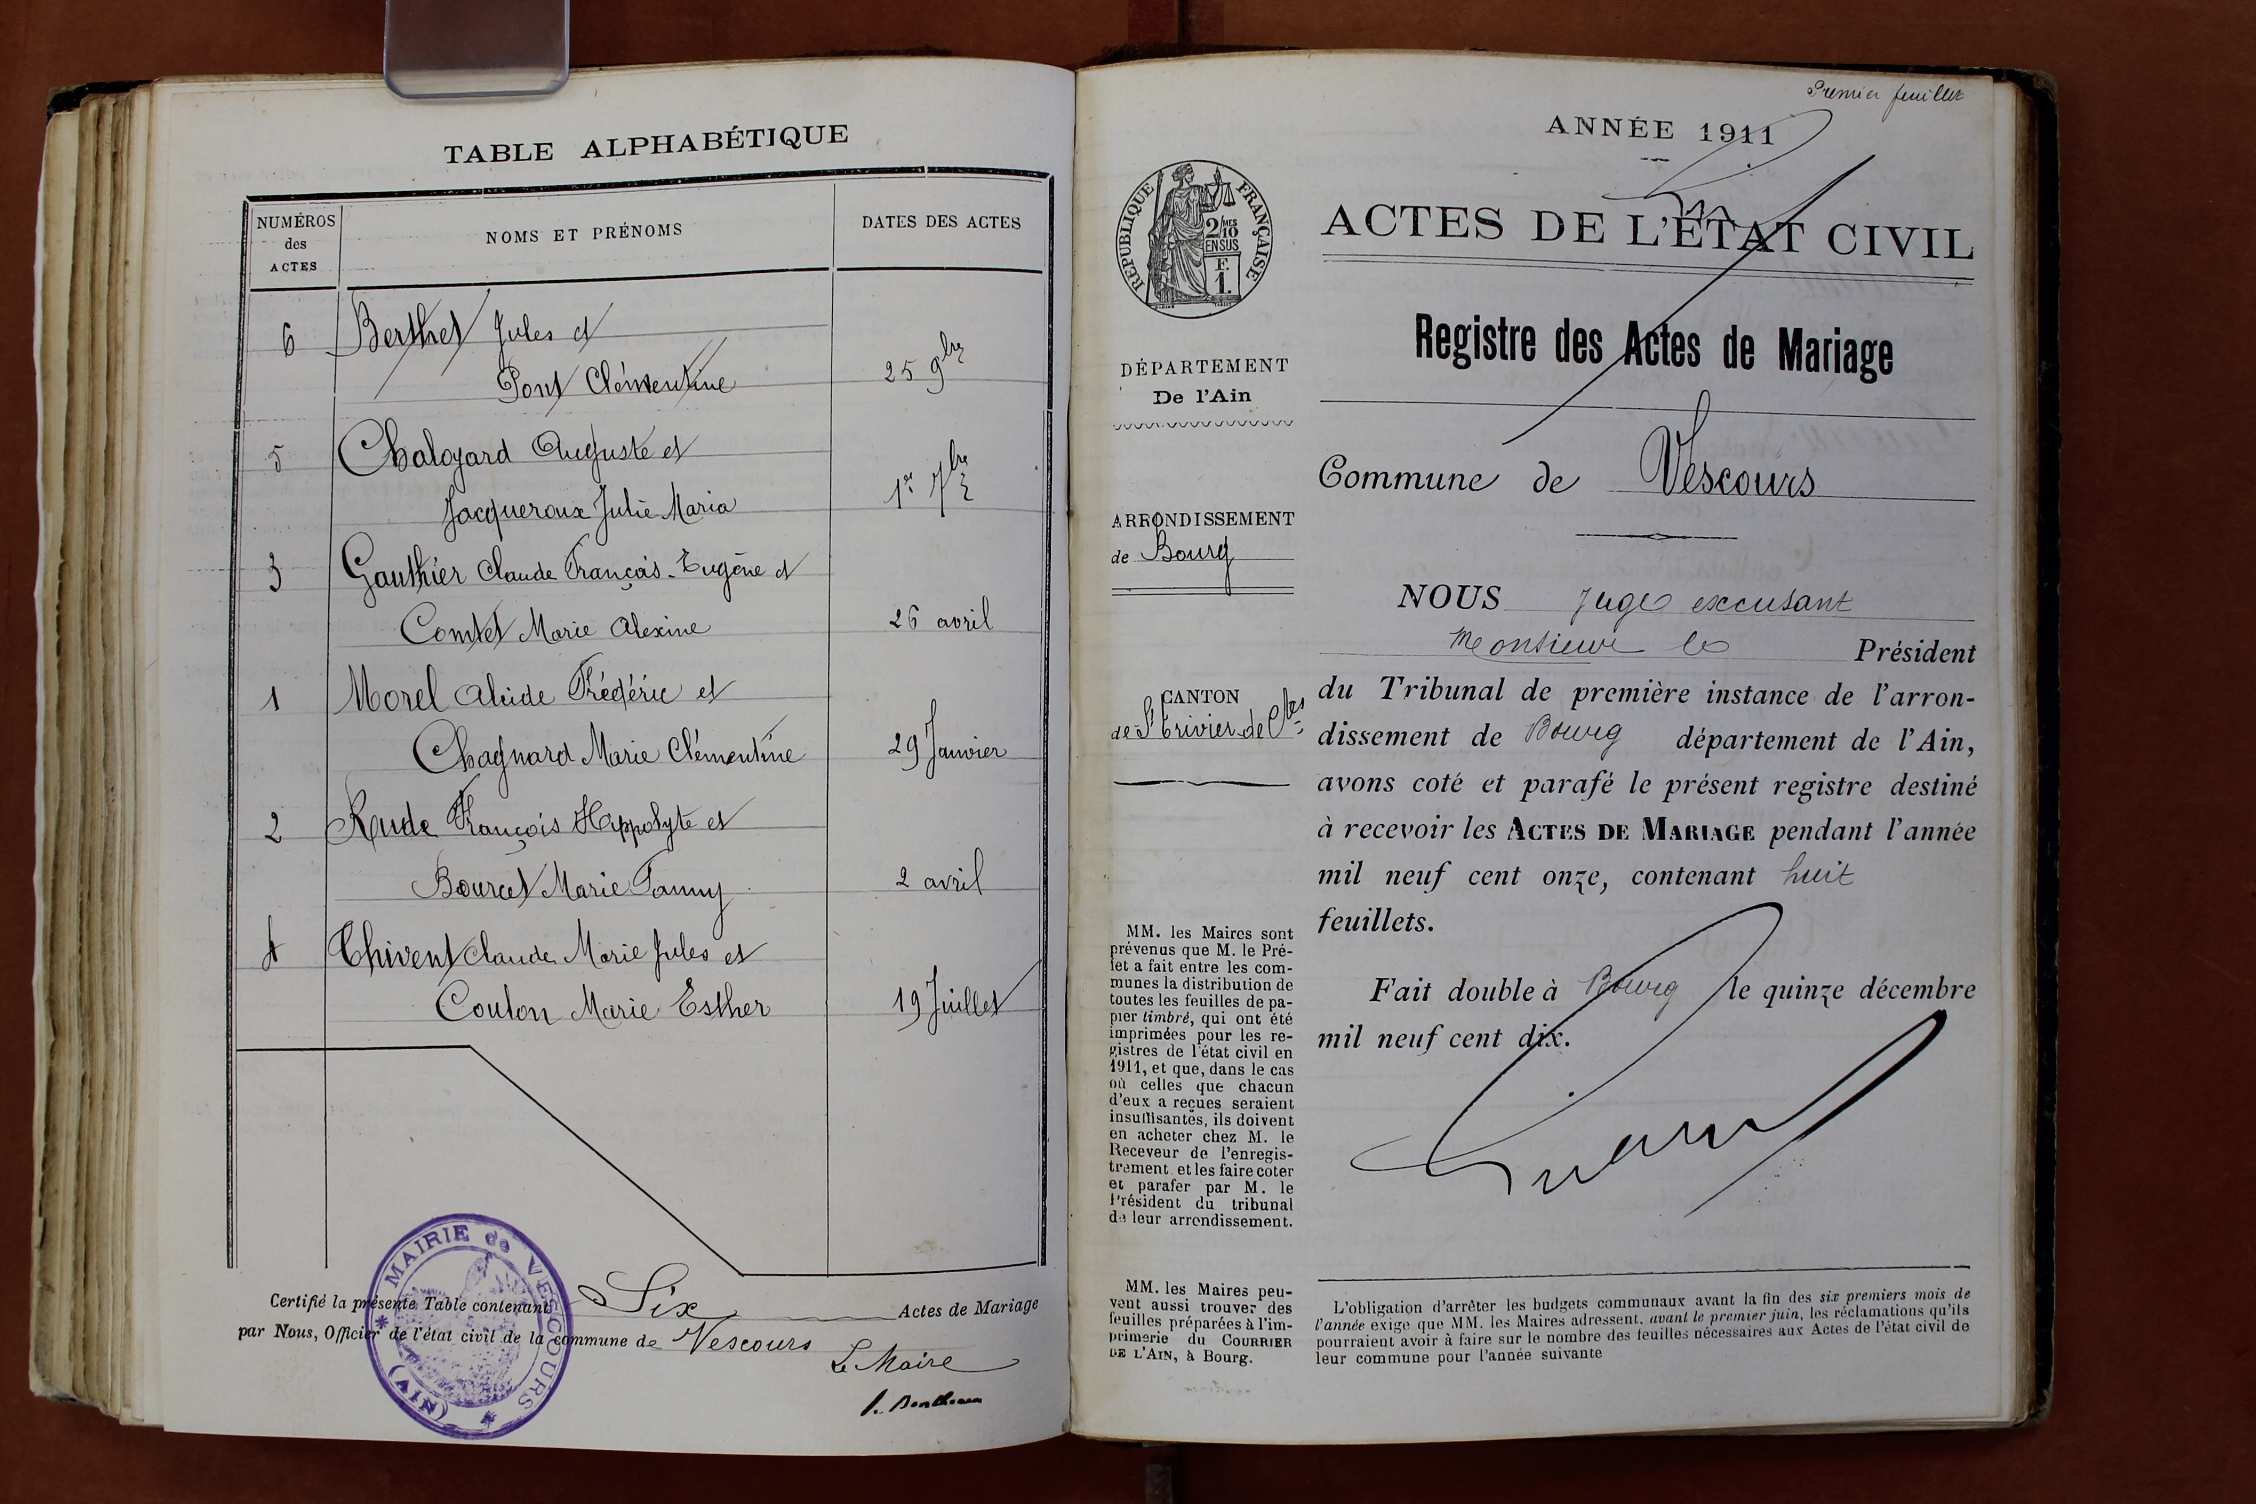 TABLE ALPHABÉTIQUE
NUMÉROS des ACTES
NOMS ET PRÉNOMS
DATES DES ACTES
6 Berthet Jules et
Pont Clémentine 25 9bre
5 Chaloyard Auguste et
Jacqueroux Julie Maria 1er 7bre
3 Gauthier Claude François-Eugène et
Comtet Marie Alexine 26 avril
1 Morel Alcide Frédéric et
Chagnard Marie Clémentine 29 Janvier
2 Rude François Hippolyte et
Bourcet Marie Fanny 2 avril
4 Thivent Claude Marie Jules et
Coulon Marie Esther 19 Juillet
MAIRIE de VESCOURS
(AIN)
Certifié la présente Table contenant Six Actes de Mariage
par Nous, Officier de l'état civil de la commune de Vescours
Le Maire
Premier feuillet
ANNÉE 1911
ACTES DE L'ÉTAT CIVIL
Registre des Actes de Mariage
Commune de Vescours
RÉPUBLIQUE FRANÇAISE
2/10 MES
EN SUS
F.
1.
DÉPARTEMENT
De l'Ain
ARRONDISSEMENT
de Bourg
CANTON
de St Trivier de Ctes
MM. les Maires sont
prévenus que M. le Pré-
fet a fait entre les com-
munes la distribution de
toutes les feuilles de pa-
pier timbré, qui ont été
imprimées pour les re-
gistres de l'état civil en
1911, et que, dans le cas
où celles que chacun
d'eux a reçues seraient
insuffisantes, ils doivent
en acheter chez M. le
Receveur de l'enregis-
trement et les faire coter
et parafer par M. le
Président du tribunal
de leur arrondissement.
MM. les Maires peu-
vent aussi trouver des
feuilles préparées à l'im-
primerie du COURRIER
DE L'AIN, à Bourg.
NOUS Juge excusant
Monsieur le Président
du Tribunal de première instance de l'arron-
dissement de Bourg département de l'Ain,
avons coté et parafé le présent registre destiné
à recevoir les ACTES DE MARIAGE pendant l'année
mil neuf cent onze, contenant huit
feuillets.
Fait double à Bourg le quinze décembre
mil neuf cent dix.
L'obligation d'arrêter les budgets communaux avant la fin des six premiers mois de
l'année exige que MM. les Maires adressent, avant le premier juin, les réclamations qu'ils
pourraient avoir à faire sur le nombre des feuilles nécessaires aux Actes de l'état civil de
leur commune pour l'année suivante